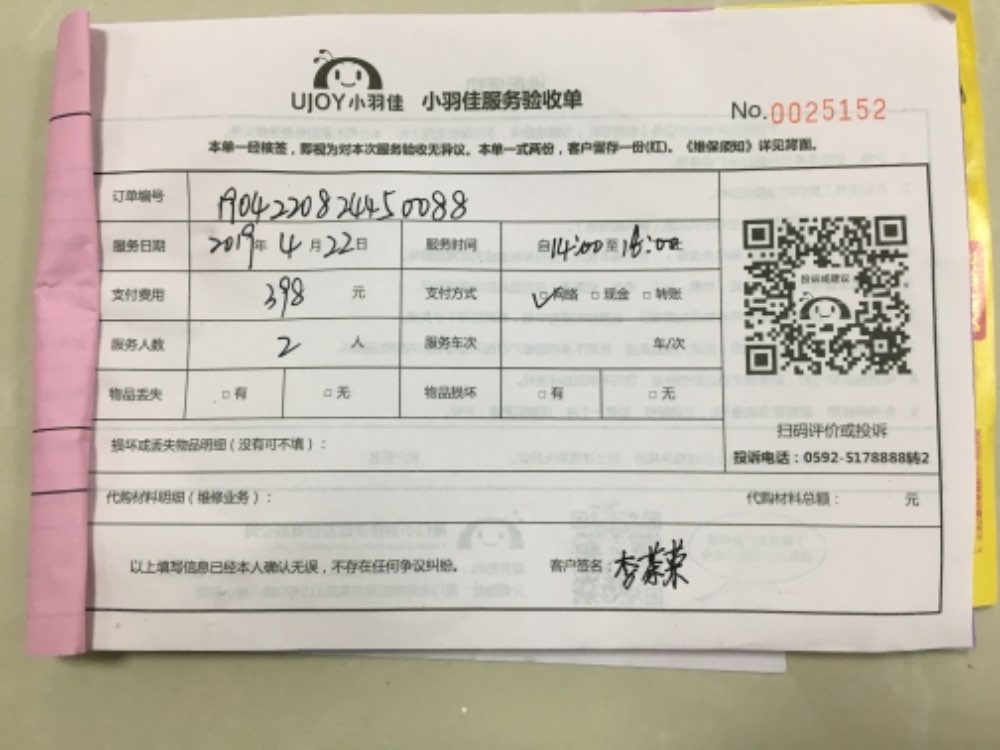 UJOY小羽佳 小羽佳服务验收单
No.0025152
本单一经接签，即视为对本次服务验收无异议。本单一式两份，客户留存一份(红)。《维保须知》详见背面。
订单编号 A04220824450088
服务日期 2019年4月22日 服务时间 自14:00至18:00
支付费用 398 元 支付方式 ✓□网络 □现金 □转账
投诉或建议
服务人数 2 人 服务车次 车/次
物品丢失 □有 □无 物品损坏 □有 □无
扫码评价或投诉
损坏或丢失物品明细（没有可不填）：
投诉电话：0592-5178888转2
代购材料明细（维修业务）： 代购材料总额： 元
以上填写信息已经本人确认无误，不存在任何争议纠纷。 客户签名：李荣